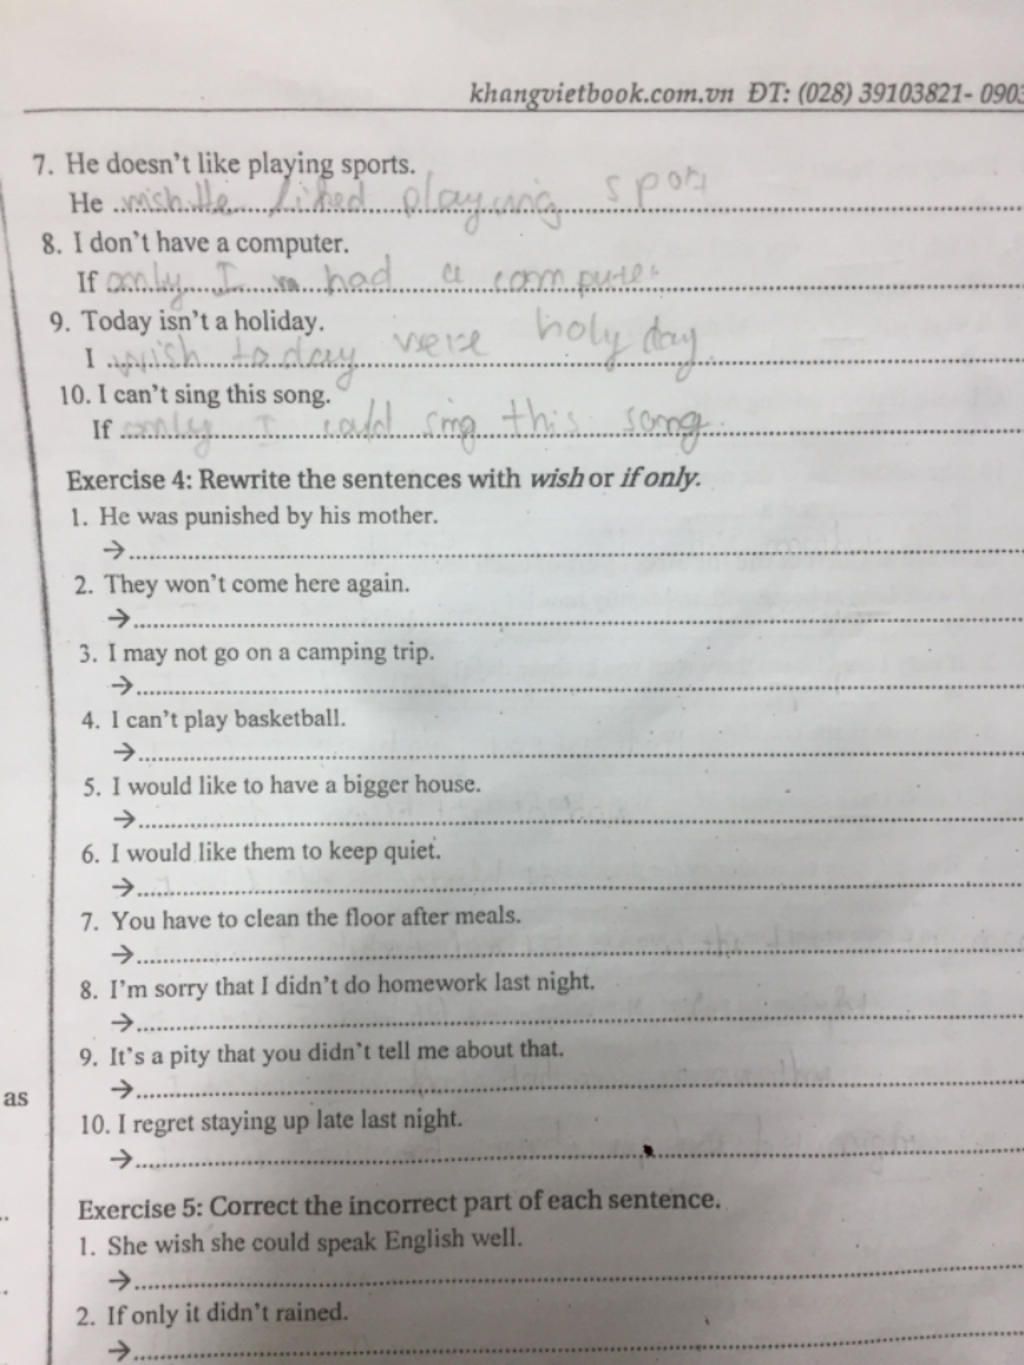 khangvietbook.com.vn ĐT: (028) 39103821- 0903
7. He doesn't like playing sports.
He ..wish.He liked playing spor
8. I don't have a computer.
If only I had a computer
9. Today isn't a holiday.
I wish today were holy day
10. I can't sing this song.
If only I could sing this song
Exercise 4: Rewrite the sentences with wish or if only.
1. He was punished by his mother.
→
2. They won't come here again.
→
3. I may not go on a camping trip.
→
4. I can't play basketball.
→
5. I would like to have a bigger house.
→
6. I would like them to keep quiet.
→
7. You have to clean the floor after meals.
→
8. I'm sorry that I didn't do homework last night.
→
9. It's a pity that you didn't tell me about that.
→
as
10. I regret staying up late last night.
→
Exercise 5: Correct the incorrect part of each sentence.
1. She wish she could speak English well.
→
2. If only it didn't rained.
→